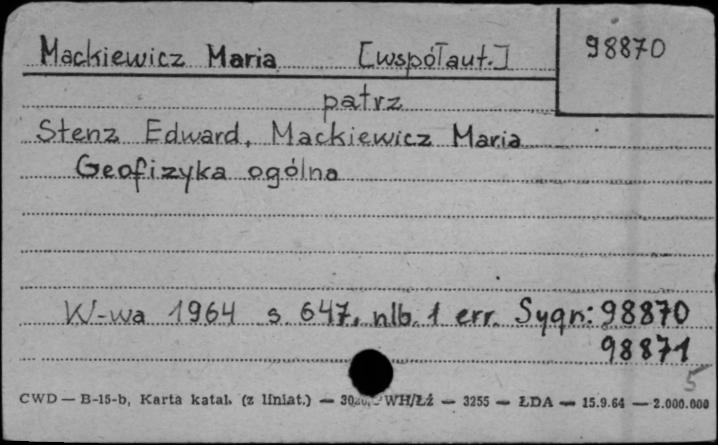 Mackiewicz Maria [współaut.] 98870
patrz
Stenz Edward, Mackiewicz Maria
Geofizyka ogólna
W-wa 1964 s. 647, nlb. 1 err. Sygn: 98870
98871
5
CWD — B-15-b, Karta katal. (z liniat.) — WH/Łź — 3255 — ŁDA — 15.9.64 — 2.000.000